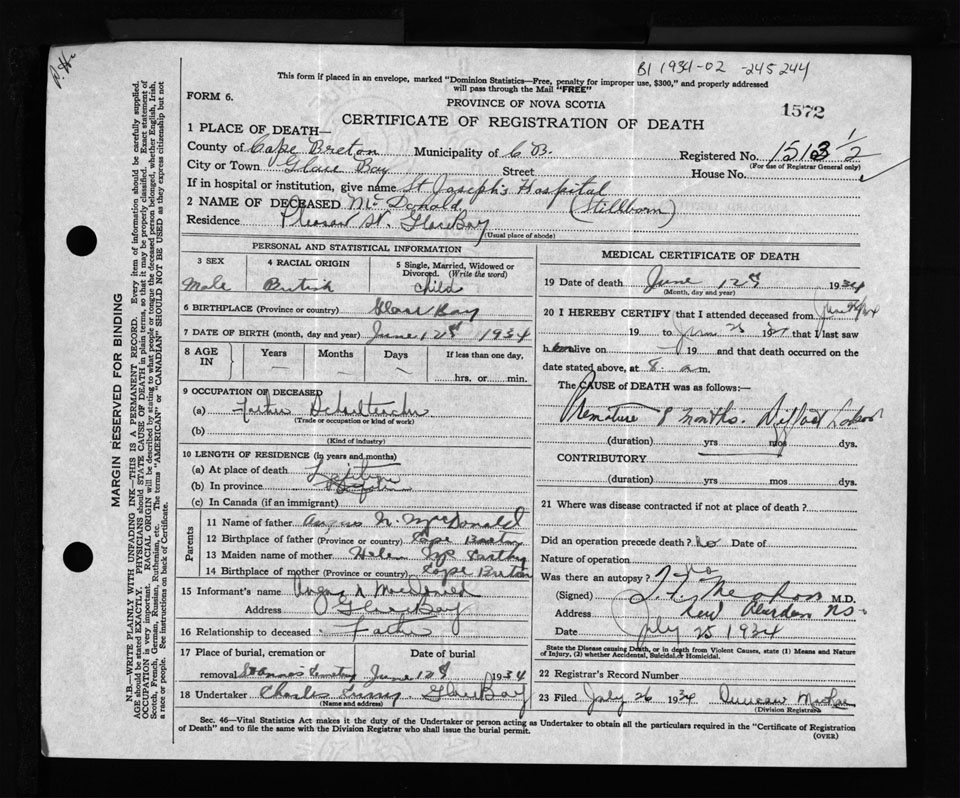 B1 1934-02 -245244
This form if placed in an envelope, marked "Dominion Statistics—Free, penalty for improper use, $300," and properly addressed
will pass through the Mail "FREE"
FORM 6.
PROVINCE OF NOVA SCOTIA
1572
CERTIFICATE OF REGISTRATION OF DEATH
1 PLACE OF DEATH—
County of Cape Breton Municipality of C B.
Registered No. 1513 1/2
(For use of Registrar General only)
City or Town Glace Bay Street House No.
If in hospital or institution, give name St Joseph's Hospital
2 NAME OF DECEASED McDonald (Stillborn)
Residence Pleasant St. Glace Bay
(Usual place of abode)
PERSONAL AND STATISTICAL INFORMATION
3 SEX
4 RACIAL ORIGIN
5 Single, Married, Widowed or Divorced. (Write the word)
Male British Child
6 BIRTHPLACE (Province or country) Glace Bay
7 DATE OF BIRTH (month, day and year) June 1934
8 AGE IN
Years Months Days If less than one day,
hrs. or min.
9 OCCUPATION OF DECEASED
(a) Father
(Trade or occupation or kind of work)
(b)
(Kind of industry)
10 LENGTH OF RESIDENCE (in years and months)
(a) At place of death
(b) In province
(c) In Canada (if an immigrant)
Parents
11 Name of father Angus N. MacDonald
12 Birthplace of father (Province or country) Cape Breton
13 Maiden name of mother Helen
14 Birthplace of mother (Province or country) Cape Breton
15 Informant's name Angus N MacDonald
Address Glace Bay
16 Relationship to deceased Father
17 Place of burial, cremation or Date of burial
removal June 1934
18 Undertaker Charles Glace Bay
(Name and address)
MEDICAL CERTIFICATE OF DEATH
19 Date of death June 1934
(Month, day and year)
20 I HEREBY CERTIFY that I attended deceased from
19 to 19 that I last saw
h alive on 19 and that death occurred on
date stated above, at 8. a m.
The CAUSE OF DEATH was as follows:—
Premature 8 months.
(duration) yrs mos dys.
CONTRIBUTORY
(duration) yrs mos dys.
21 Where was disease contracted if not at place of death?
Did an operation precede death? no Date of
Nature of operation
Was there an autopsy? no
(Signed) M.D.
Address New Aberdeen N.S.
Date July 25 1934
State the Disease causing Death, or in death from Violent Causes, state (1) Means and Nature
of Injury, (2) whether Accidental, Suicidal or Homicidal.
22 Registrar's Record Number
23 Filed July 26 1934 Duncan
(Division Registrar)
Sec. 46—Vital Statistics Act makes it the duty of the Undertaker or person acting as Undertaker to obtain all the particulars required in the "Certificate of Registration
of Death" and to file the same with the Division Registrar who shall issue the burial permit.
(OVER)
MARGIN RESERVED FOR BINDING
N.B.—WRITE PLAINLY WITH UNFADING INK—THIS IS A PERMANENT RECORD. Every item of information should be carefully supplied.
AGE should be stated EXACTLY. PHYSICIANS should STATE CAUSE OF DEATH in plain terms, so that it may be properly classified. Exact statement of
OCCUPATION is very important. RACIAL ORIGIN will be described by stating to what people or tongue the deceased person belonged, whether English, Irish,
Scotch, French, German, Russian, Ruthenian, etc. The terms "AMERICAN" or "CANADIAN" SHOULD NOT BE USED as they express citizenship but not
a race or people. See instructions on back of Certificate.